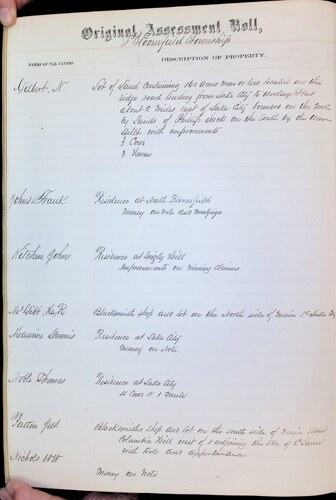 Original Assessment Roll,
Bloomfield Township
NAMES OF TAX PAYERS.
DESCRIPTION OF PROPERTY.
Gilbert, N. Lot of Land containing 160 acres more or less located on the
ridge road leading from Lake City to
about 2 miles east of Lake City bounded on the North
by Lands of Phillip on the South by the
ditch with improvements
3 Cows
2 Horses
Johns Frank Residence at North Bloomfield
Money on Note and Mortgage
John Residence at Grizly Hill
Improvements on Mining Claims
Blacksmith Shop and lot on the North side of Main St Lake City
Maurice Dennis Residence at Lake City
Money on Note
Noble Thomas Residence at Lake City
4 Cows & 1 Mule
Blacksmiths Shop and lot on the south side of Main Street
Columbia Hill west of & adjoining the
with tools and appurtenances
Nichols WW
Money on Note